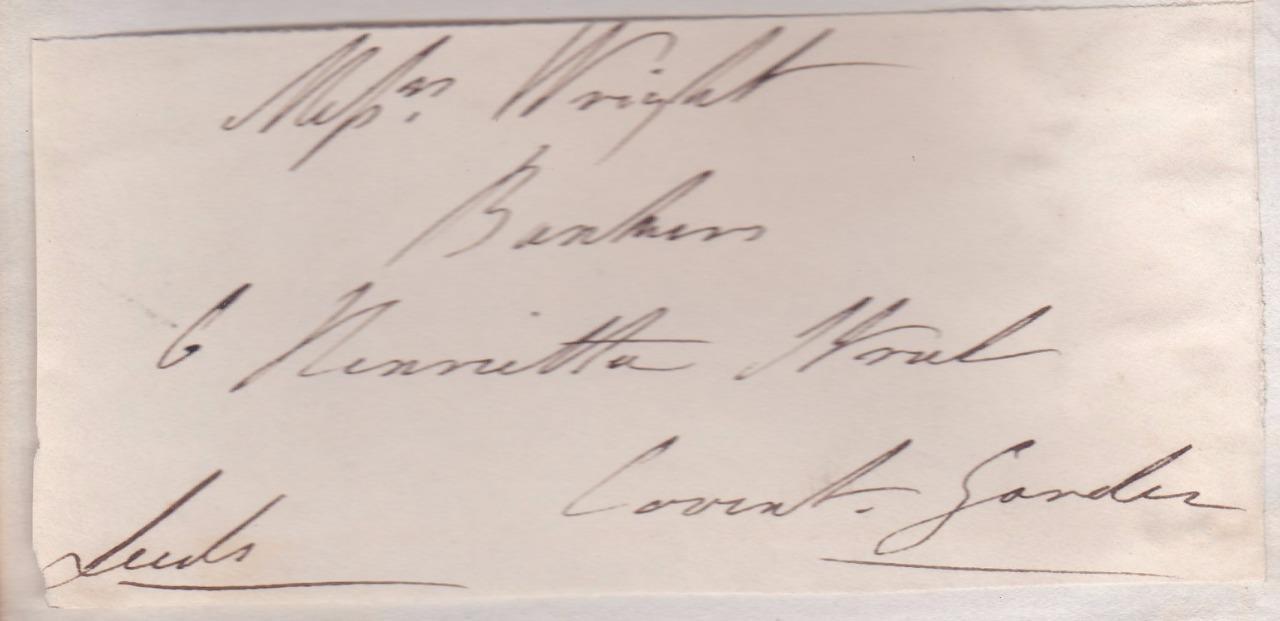 Messrs. Wright
Bankers
6 Henrietta Street
Covent. Garden
Leeds